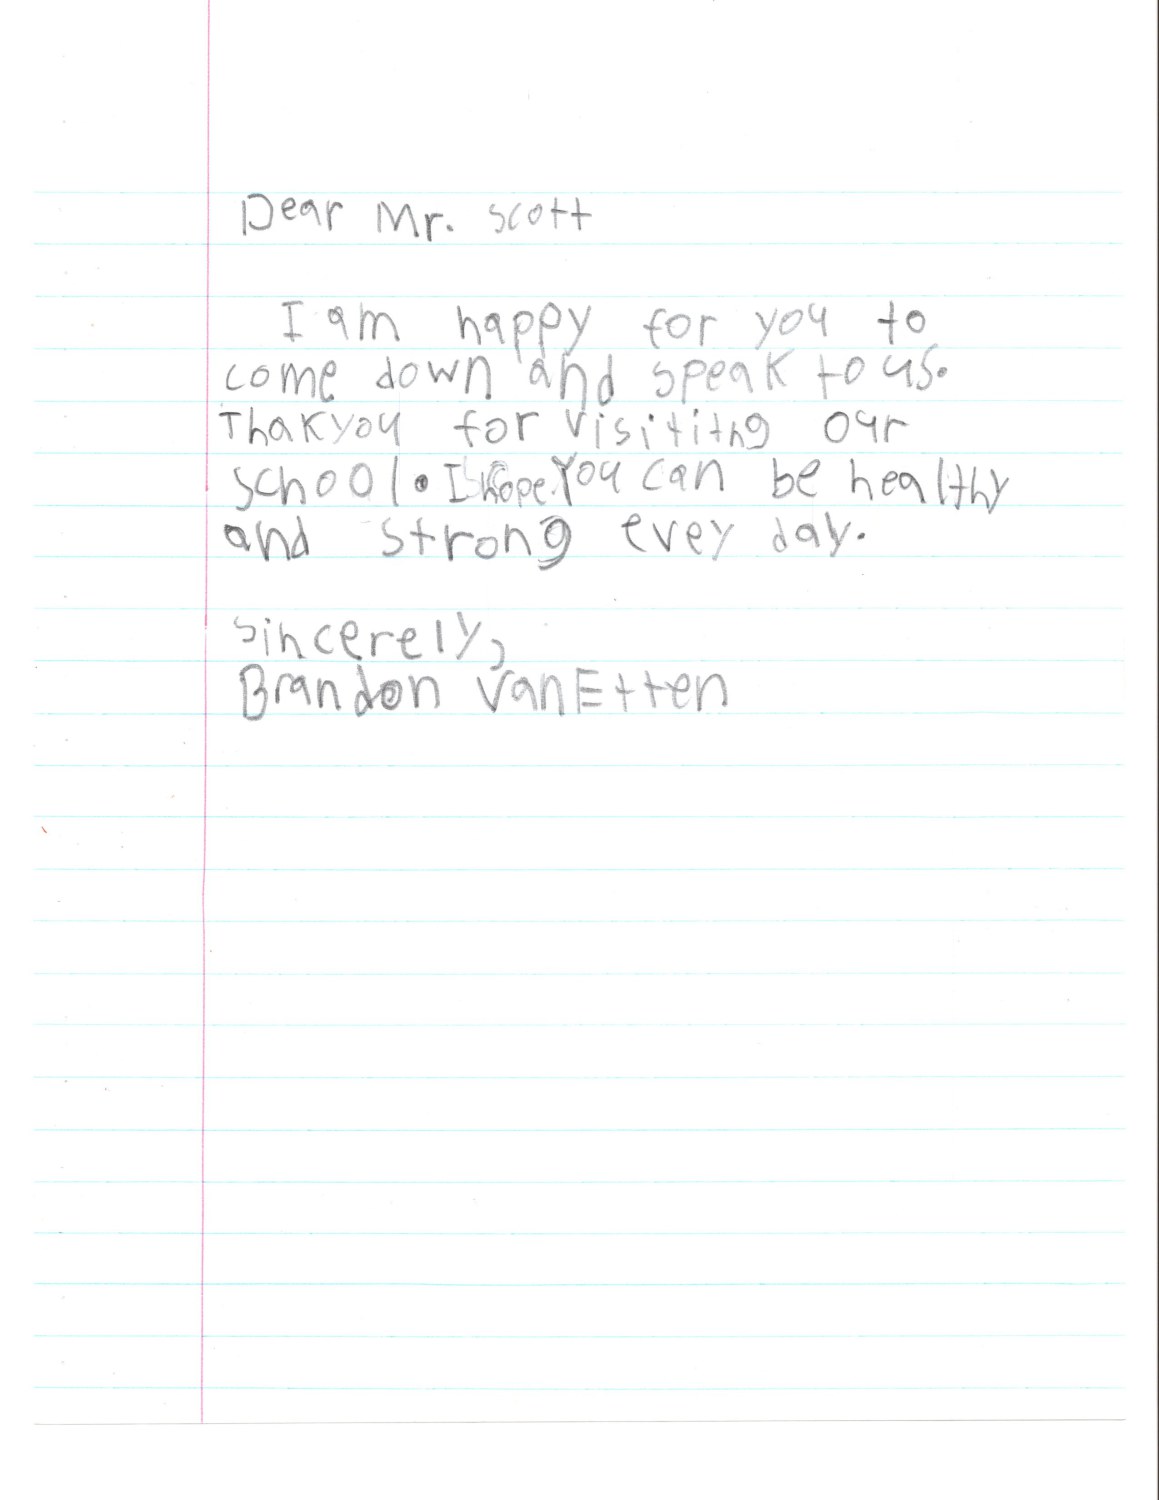 Dear Mr. Scott
I am happy for you to
come down and speak to us.
Thakyou for visititng our
school. I hope you can be healthy
and strong evey day.
Sincerely,
Brandon VanEtten